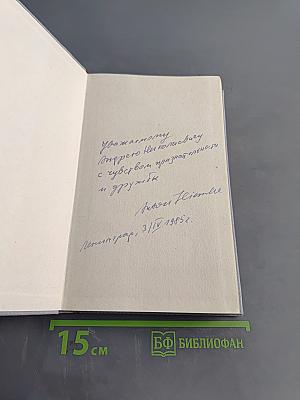 Уважаемому
Андрею Николаевичу
с чувством признательности
и дружбы
Ленинград, 3/IV 1985 г.
15 см
БФ БИБЛИОФАН